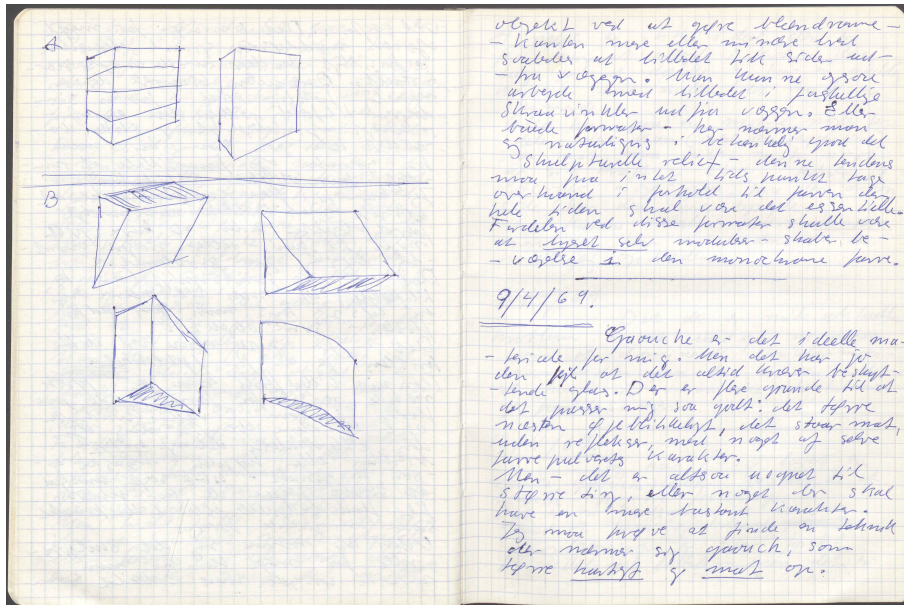 A
B
objekt ved at gøre blændramme-
- kanten mere eller mindre bred
saaledes at billedet fik sider ud-
- fra væggen. Man kunne ogsaa
arbejde med billedet i forskellige
skraavinkler ud fra væggen. Eller
buede formater - her nærmer man
sig naturligvis i betænkelig grad det
skulpturelle relief - denne tendens
maa paa intet tidspunkt tage
overhaand i forhold til farven der
hele tiden skal være det essentielle.
Fordelen ved disse formater skulle være
at lyset selv modulerer - skaber be-
- vægelse i den monochrome farve.
9/4/69.
Gouache er det ideelle ma-
- teriale for mig. Men det har jo
den fejl at det altid kræver beskyt-
- tende glas. Der er flere grunde til at
det passer mig saa godt. det tørre
næsten øjeblikkeligt, det staar mat,
uden reflekser, med noget af selve
farvepulverets karakter.
Men - det er altsaa uegnet til
større ting, eller noget der skal
have en mere bastant karakter.
Jeg maa prøve at finde en teknik
der nærmer sig gouach, som
tørre hurtigt og mat op.